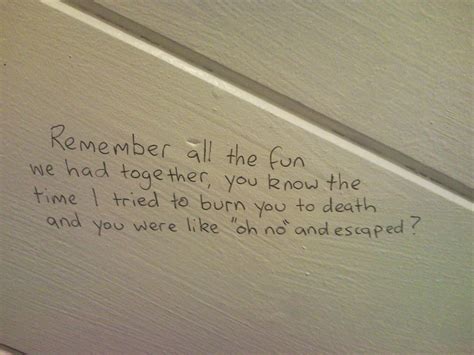 Remember all the fun
we had together, you know the
time I tried to burn you to death
and you were like "oh no" and escaped?